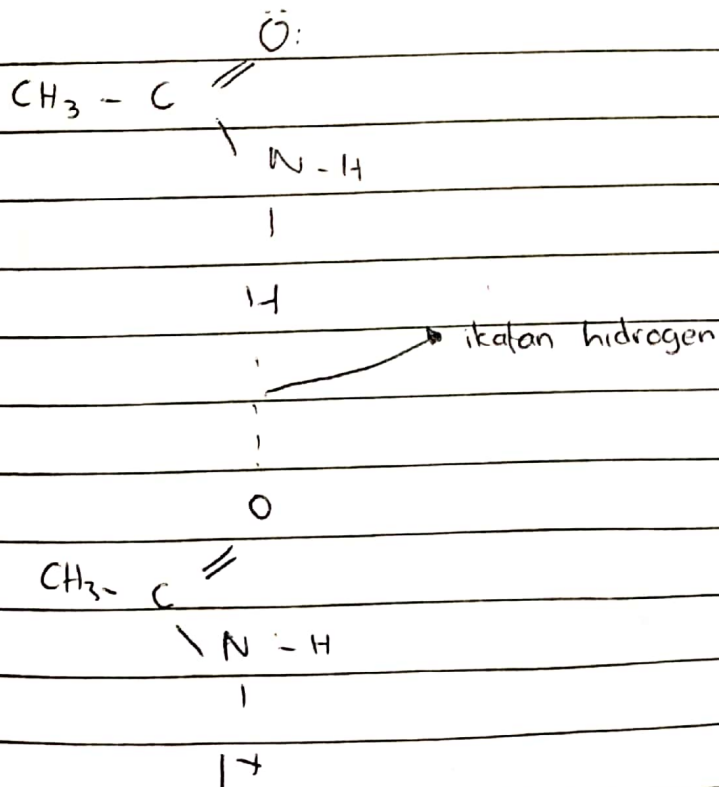 Ö:
CH₃ - C
N - H
H
ikatan hidrogen
O
CH₃- C
N - H
H